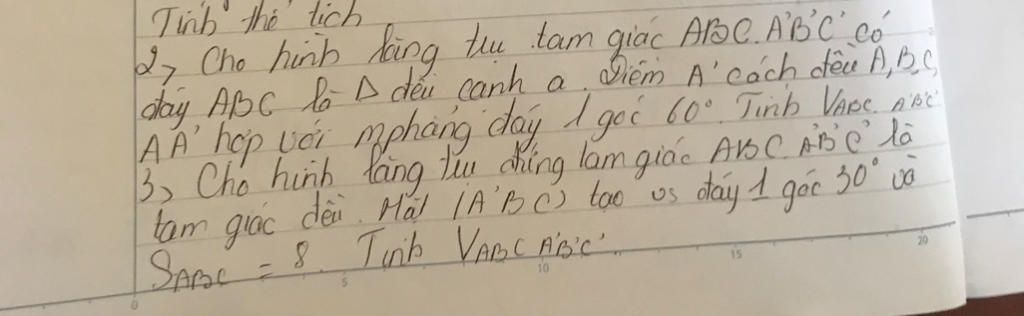 Tính thể tích
2, Cho hình lăng trụ tam giác ABC.A'B'C' có
đáy ABC là Δ đều cạnh a. Điểm A' cách đều A,B,C,
AA' hợp với mphẳng đáy 1 góc 60°. Tính VABC.A'B'C'
3, Cho hình lăng trụ đứng tam giác ABC.A'B'C' là
tam giác đều. Mặt (A'BC) tạo vs đáy 1 góc 30° và
SABC = 8. Tính VABC A'B'C'.
0 5 10 15 20